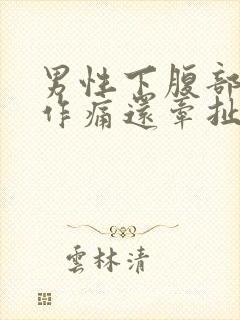 男性下腹部
作痛還牽扯
雲林清